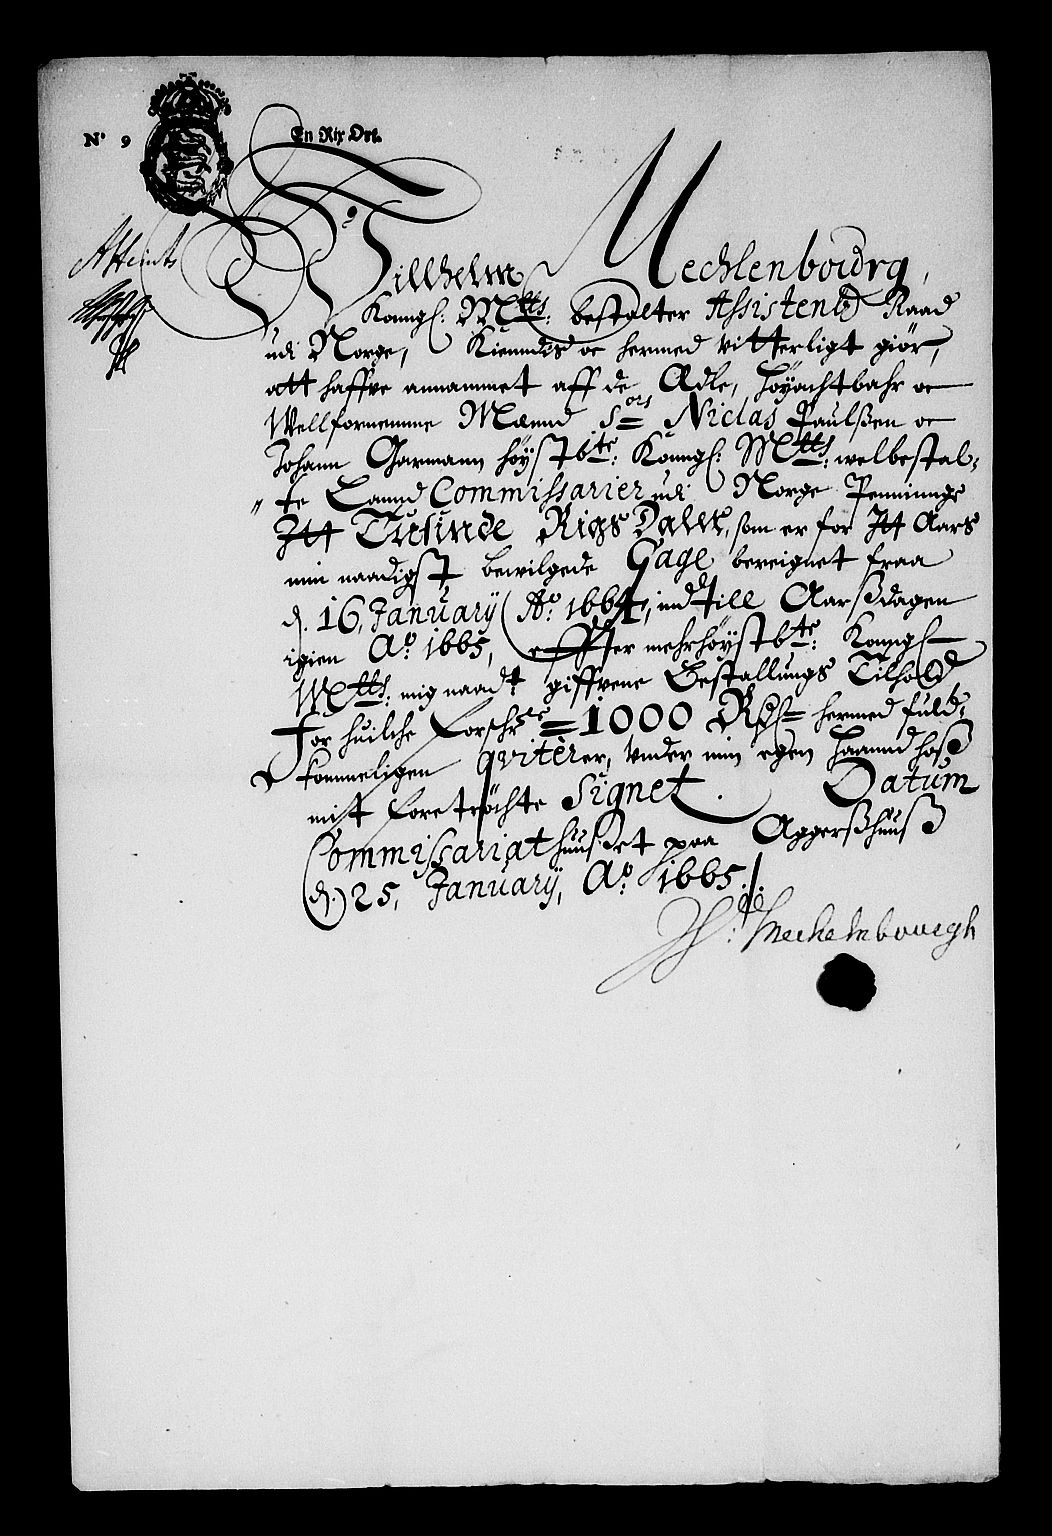 Nº 9
En Rix Ort.
Willhelm Mechlenbourg,
Konngl: Mtts: bestalter Assistentz Raad
udi Norge, Kienndis oc hermed vitterligt giør,
att haffve annammet aff de Adle, Høyachtbahr oc
Wellfornemme Mænnd Sors Niclas Paulsßen oc
Johann Garmann høystbte: Konngl: Mtts: welbestal-
te Lannd Commissarier udi Norge Penninnge
Itt Tusinde Rigs Daler, som er for Itt Aars
min naadigst bewilgede Gage bereignet fraa
d. 16, January Aº 1664, ind till Aarßdagen
igien Aº 1665, effter mehrhøystbte: Konngl
Mtts: mig naadt giffvene Bestallungs Tilhold
For huilche forschrne = 1000 Rdr hermed fuld-
kommeligen qviterer, Under min egen Haannd hoß
mit foretrøchte Signet. Datum
Commissariathuuset paa Aggerßhuuß
d. 25, January, Aº 1665.
W: Mechelnbouegh